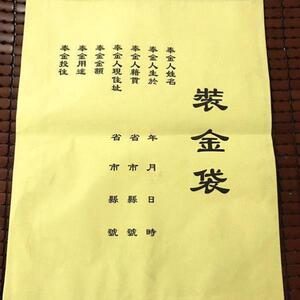 裝金袋
奉金人姓名
奉金人生於 年 月 日 時
奉金人籍貫 省 市 縣 號
奉金人現住址 省 市 縣 號
奉金金額
奉金用途
奉金投往